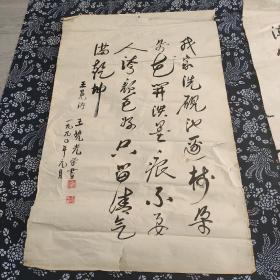 我家洗砚池边树朵
朵花开淡墨痕不要
人夸颜色好只留清气
满乾坤
王冕诗
一九九〇年元月